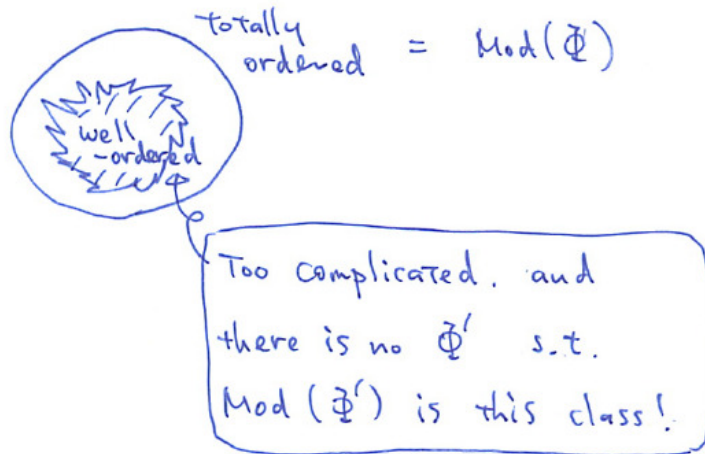 totally
ordered = Mod(Φ)
well
-ordered
Too complicated. and
there is no Φ' s.t.
Mod (Φ') is this class!